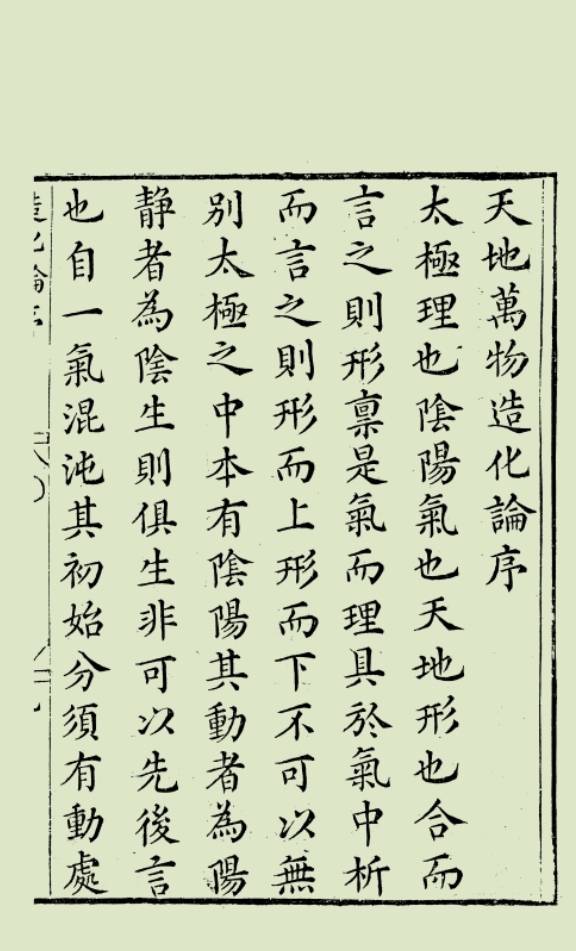 天地萬物造化論序
太極理也陰陽氣也天地形也合而
言之則形禀是氣而理具於氣中析
而言之則形而上形而下不可以無
別太極之中本有陰陽其動者為陽
静者為陰生則俱生非可以先後言
也自一氣混沌其初始分須有動處